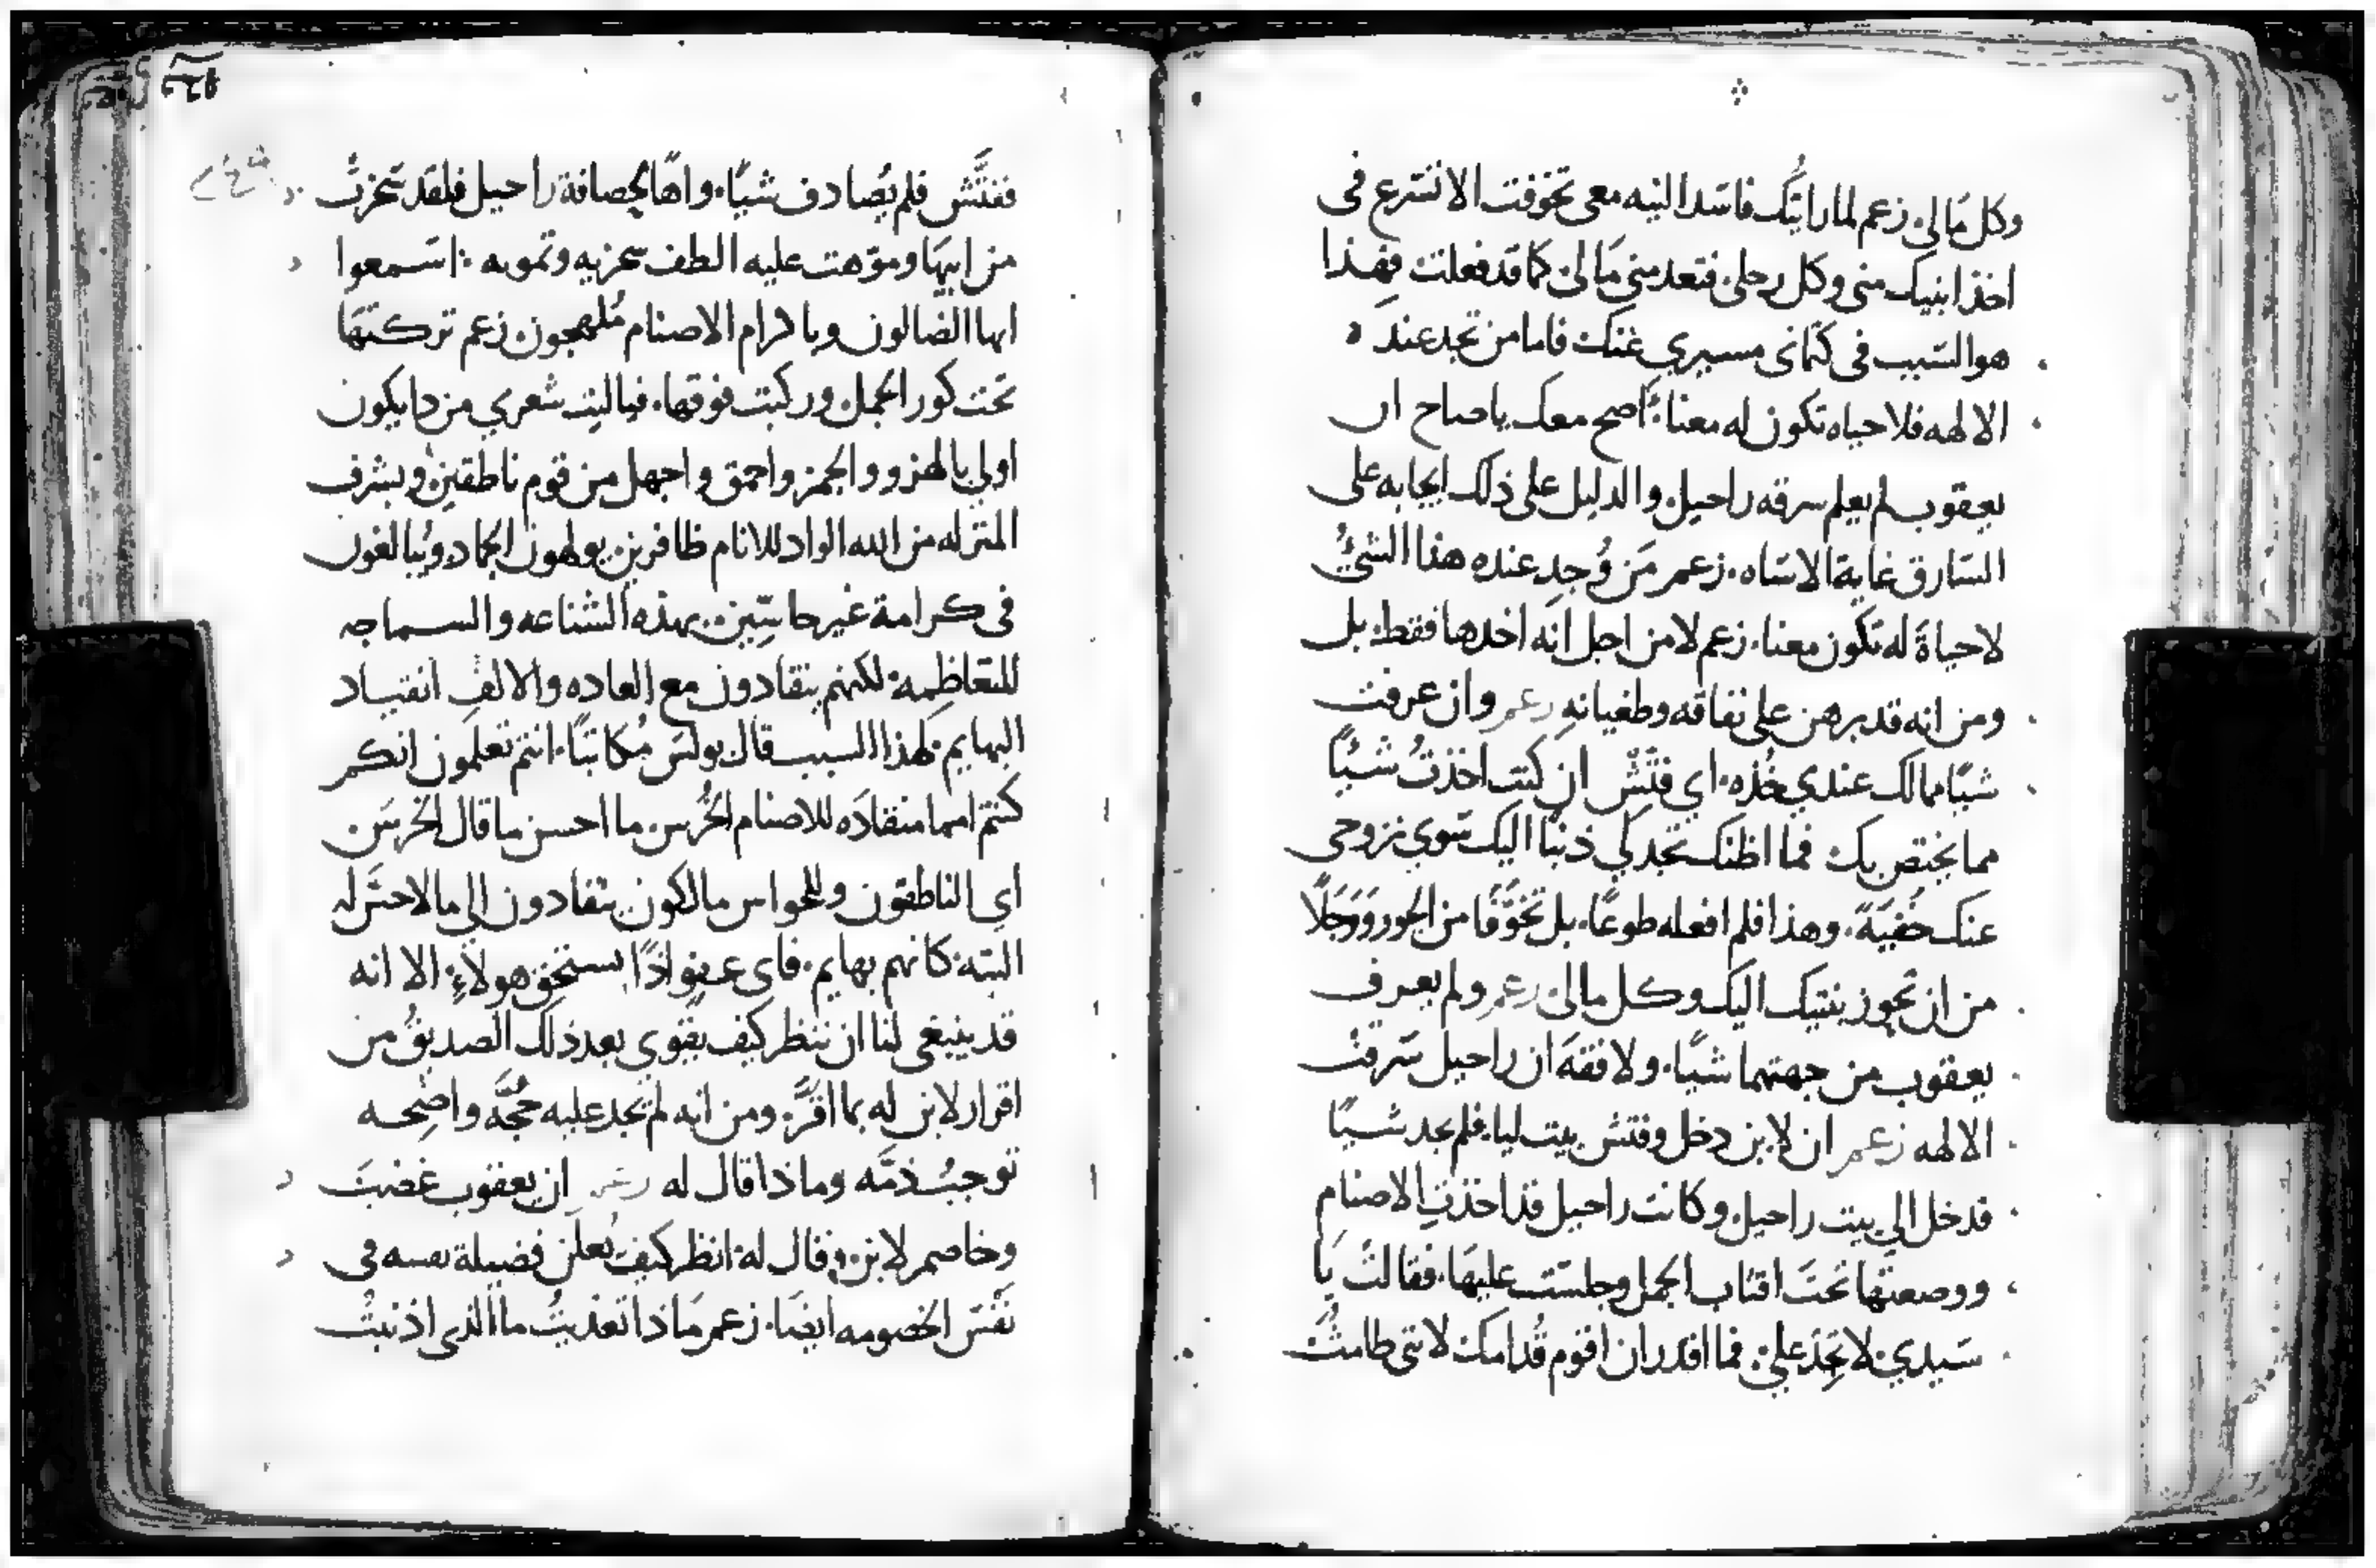 وكل مالي زعم لما رايتك فاسد النيه معي تخوفت الا تنترع في
اخذ ابنيك مني وكل رحلي فتعدمني مالي كما قد فعلت فهذا
هو السبب في كتماني مسيري عنك فاما من تجد عنده
الالهه فلا حياه تكون له معنا: أصح معك ياصاح ان
يعقوب لم يعلم سرقه راحيل والدليل على ذلك ايجابه على
السارق غاية الاساه. زعم مَن وُجد عنده هذا الشيُّ
لا حياةَ له تكون معنا. زعم لا من اجل انه اخدها فقط بل
ومن انه قد برهن على نفاقه وطغيانه زعم وان عرفت
شيًا مما لك عندي خُذه. اي فتّش ان كنت اخذتُ شيًا
مما يختص بك فما اظنك تجد لي ذنبًا اليك سوي نزوحي
عنك خفيَةً. وهذا فلم افعله طوعًا. بل تخوَّفًا من الجور ووَجَلًا
من ان تحوز بنتيك اليك وكل مالي زعم ولم يعرف
يعقوب من جهتهما شيًا. ولا فقهَ ان راحيل سَرقت
الالهه زعم ان لابن دخل وفتش بيت ليا فلم يجد شيًا
فدخل الي بيت راحيل وكانت راحيل قد اخذتِ الاصنام
ووضعتها تحتَ اقتاب الجمل وجلسَت عليهَا. فقالت يَا
سَيدي لا تجِد علي. فما اقدر ان اقوم قُدامك لانني طامثٌ
ففتَّش فلم يُصادف شيًا. واهًا لحصافة راحيل فلقد سَخرتْ
من ابيهَا وموّهت عليه الطف سخريه وتمويه: اسَمعوا
ايها الضالون وباكرام الاصنام مُلهجون زعم تركتهَا
تحت كور الجمل وركبت فوقها. فياليت شعري من ذا يكون
اولي بالهزو والجمز واحمق واجهل من قوم ناطقين وبشرف
المنزله من الله الواد للانام ظافرين يولهون الجماد ويُبالغون
في كرامة غير حاسّين. بهذه الشناعه والسماجه
المتعاظِمه لكنهم ينقادون مع العاده والالفِ انقياد
البهايم. لهذا السبب قال بولس مُكاتبًا. انتم تعلمون انكم
كنتم امما منقادَه للاصنام الخُرس. ما احسن ما قال الخرسَ
اي الناطقون وللحواس مالكون ينقادون الي ما لا حسَّ له
البته كانهم بهايم. فاي عفو اذًا يستحق هولاءِ الا انه
قد ينبغي لنا ان ننظر كيف يقوي بعد ذلك الصديقُ من
اقرار لابن له بما اقرَّ ومن انه لم تجد عليه حُجَّه واضِحه
توجبُ ذمَّه وماذا قال له زعم ان يعقوب غضبَ
وخاصم لابن وقال له انظر كيف تُعلن فضيلة نفسه في
نفس الخصومه ايضًا. زعم مَاذا تعديتُ ما الذي اذنبتُ